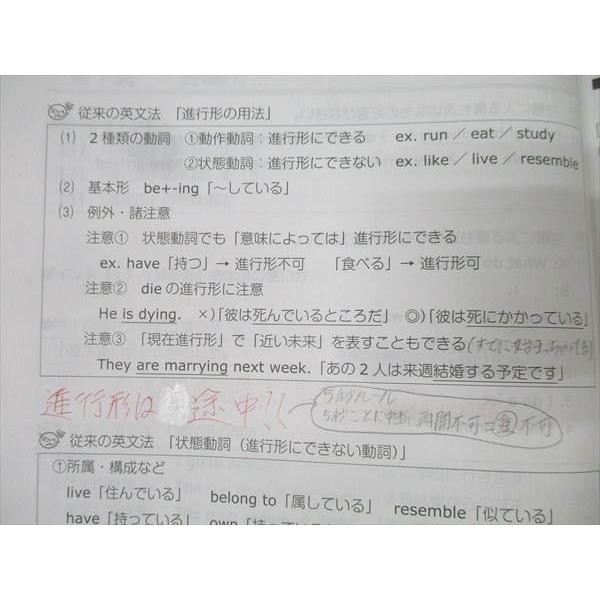 従来の英文法 「進行形の用法」
(1) 2種類の動詞 ①動作動詞：進行形にできる ex. run ／ eat ／ study
②状態動詞：進行形にできない ex. like ／ live ／ resemble
(2) 基本形 be+-ing「～している」
(3) 例外・諸注意
注意① 状態動詞でも「意味によっては」進行形にできる
ex. have「持つ」→ 進行形不可 「食べる」→ 進行形可
注意② die の進行形に注意
He is dying. ×)「彼は死んでいるところだ」 ◎)「彼は死にかかっている」
注意③ 「現在進行形」で「近い未来」を表すこともできる(すでに始まっちゃってる)
They are marrying next week.「あの2人は来週結婚する予定です」
進行形は途中!!
5秒ルール
5秒ごとに中断、再開不可→進不可
従来の英文法 「状態動詞（進行形にできない動詞）」
①所属・構成など
live「住んでいる」 belong to「属している」 resemble「似ている」
have「持っている」 own「持っている」